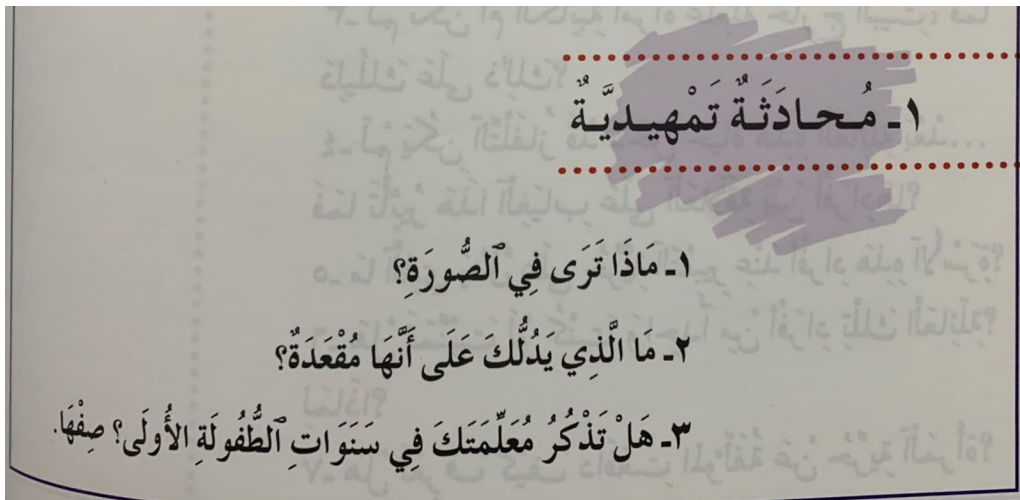 ١ـ مُـحـادَثَـةٌ تَمْهِيـدِيَّـةٌ
١ـ مَاذَا تَرَى فِي ٱلصُّورَةِ؟
٢ـ مَا الَّذِي يَدُلُّكَ عَلَى أَنَّهَا مُقْعَدَةٌ؟
٣ـ هَلْ تَذْكُرُ مُعَلِّمَتَكَ فِي سَنَوَاتِ ٱلطُّفُولَةِ الأُولَى؟ صِفْهَا.